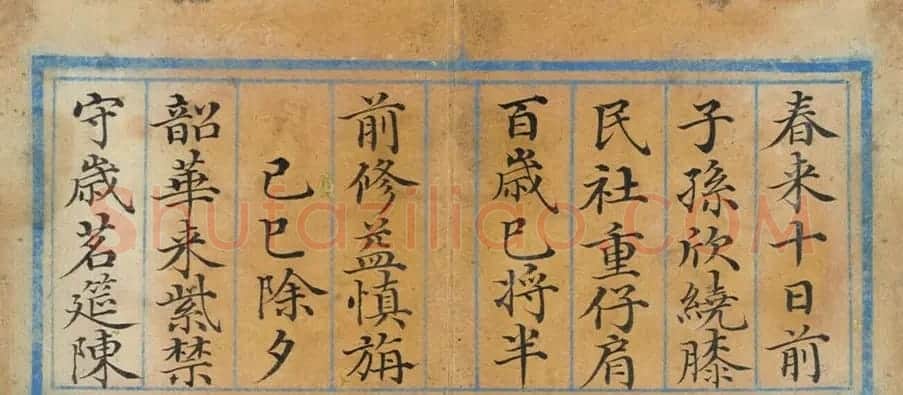 春来十日前
子孫欣繞膝
民社重仔肩
百歳已将半
前修益慎旃
己巳除夕
韶華来紫禁
守歳茗筵陳
shufaziliao.COM